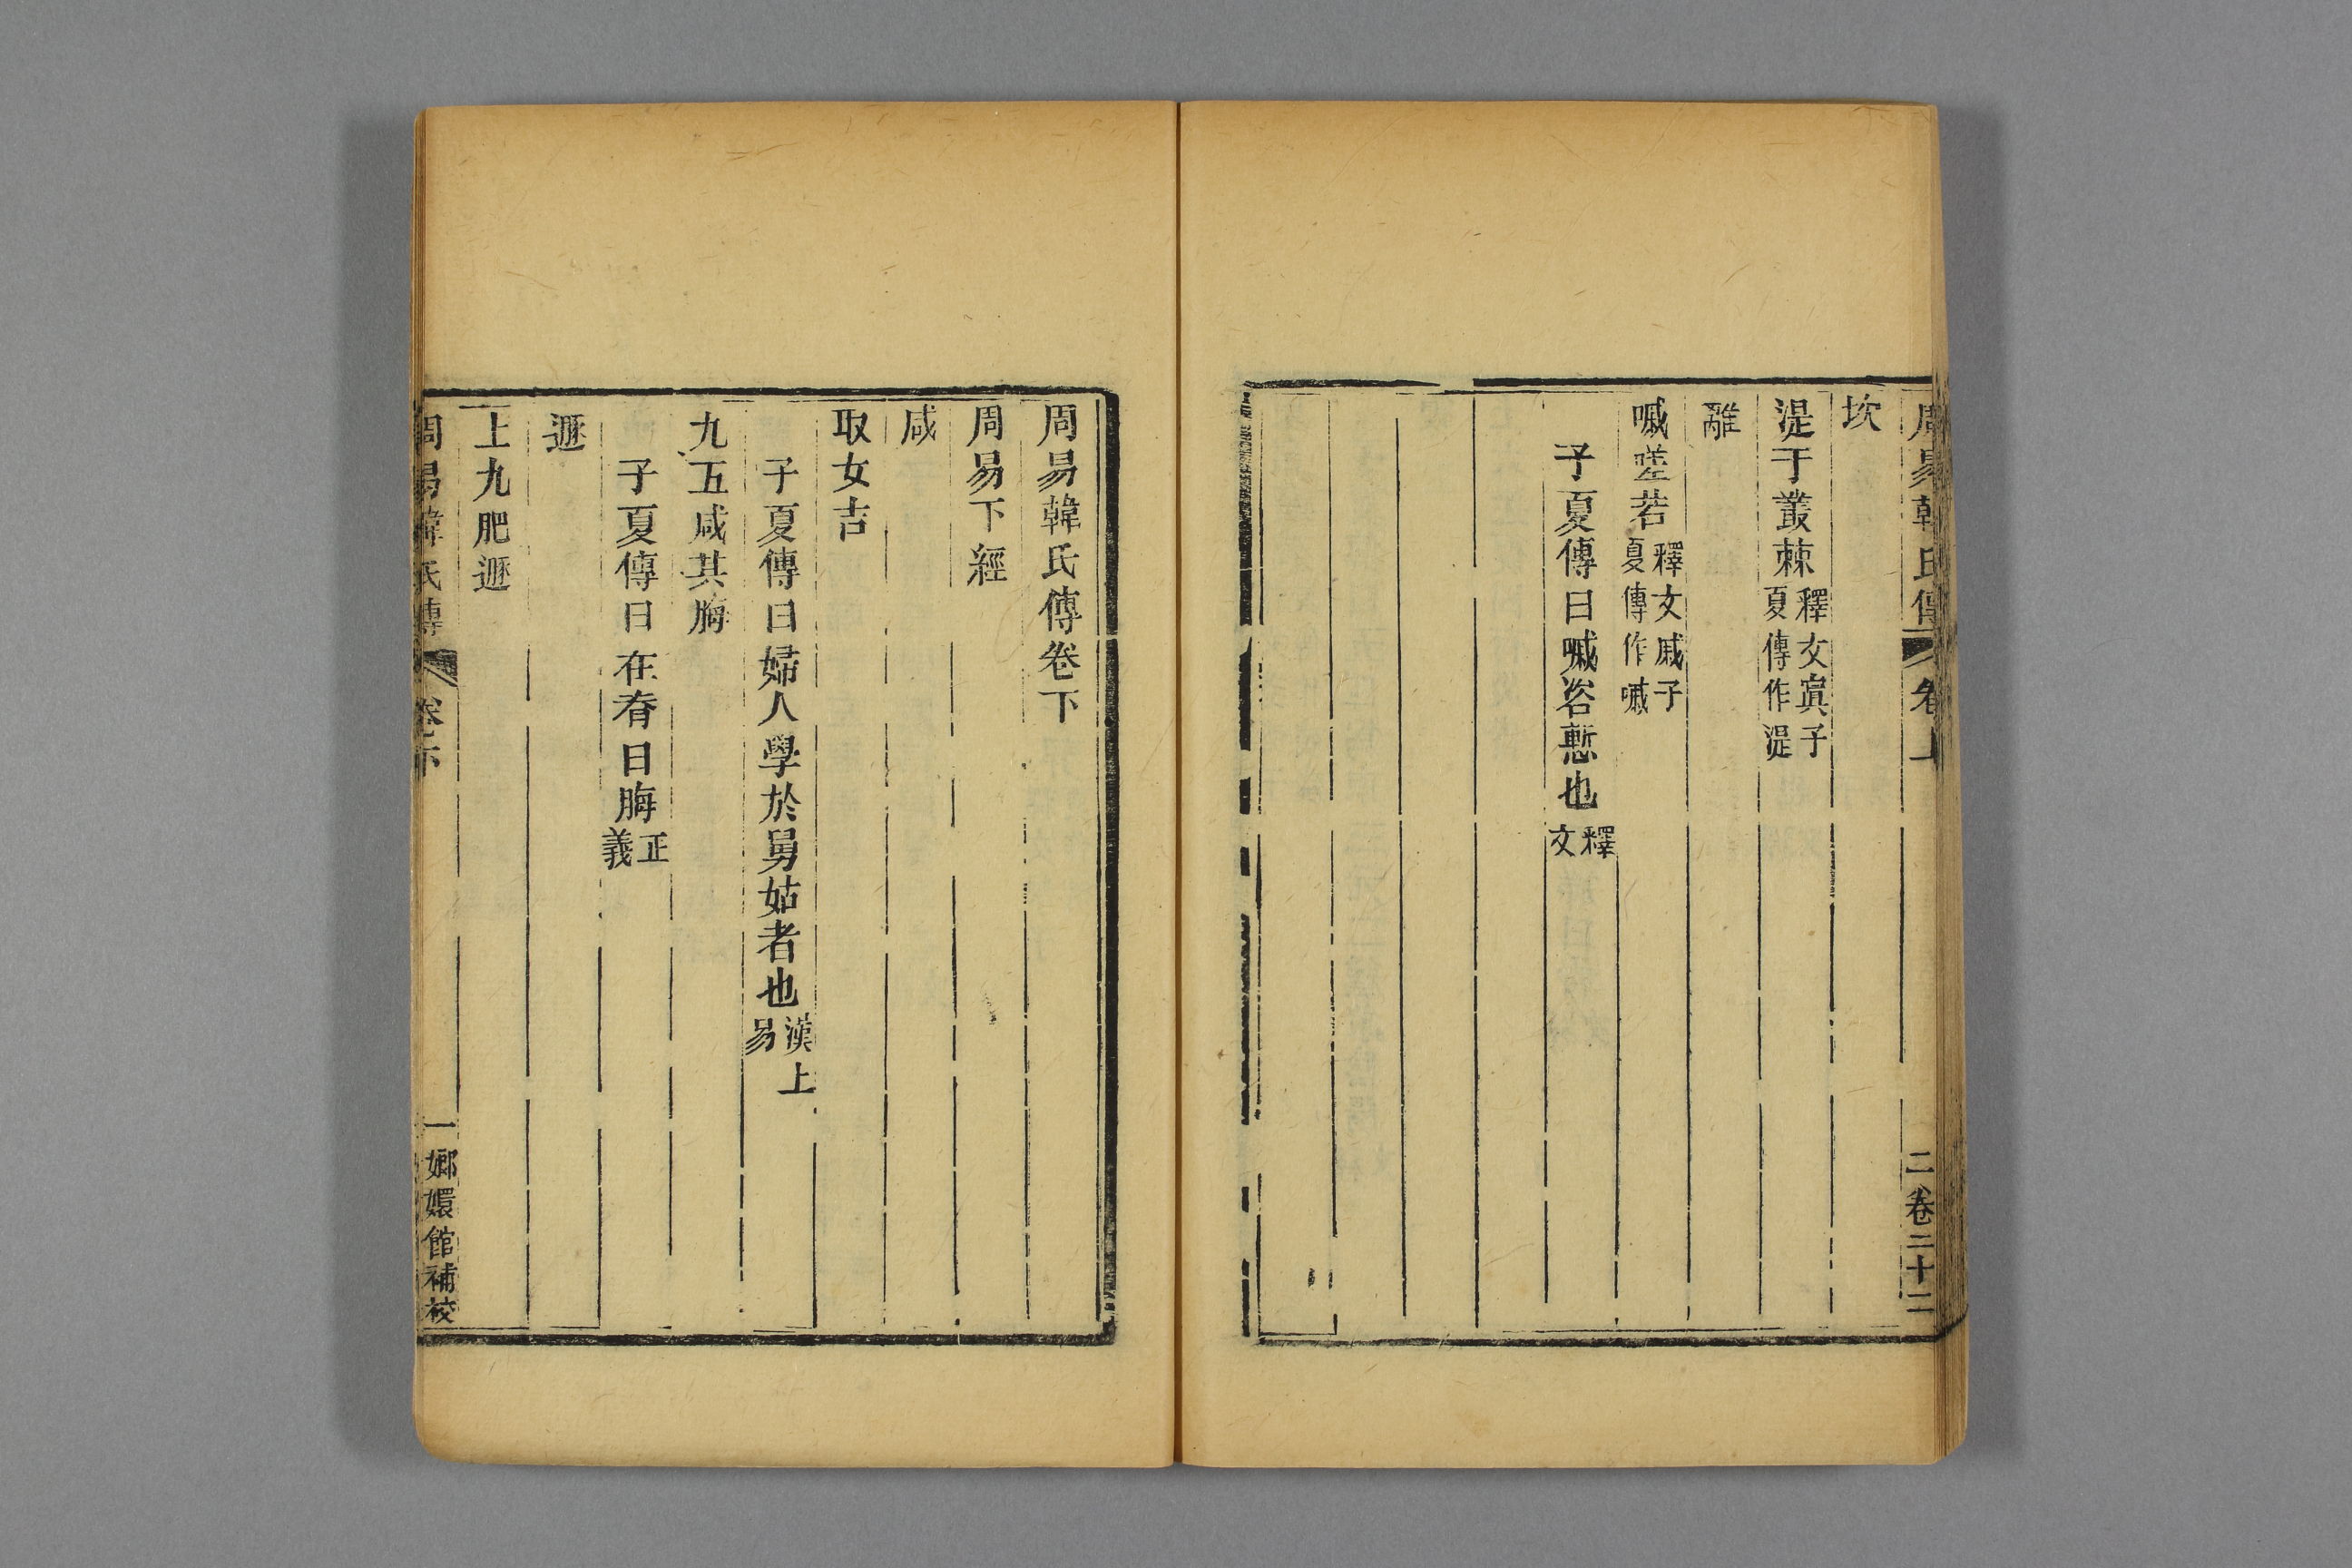 周易韓氏傳 卷上 二 卷二十二
坎
湜于叢棘釋文寘子夏傳作湜
離
嘁嗟若釋文戚子夏傳作嘁
子夏傳曰嘁咨慙也釋文
周易韓氏傳卷下
周易下經
咸
取女吉
子夏傳曰婦人學於舅姑者也漢上易
九五咸其脢
子夏傳曰在脊曰脢正義
遯
上九肥遯
周易韓氏傳 卷下 一 嫏嬛館補校